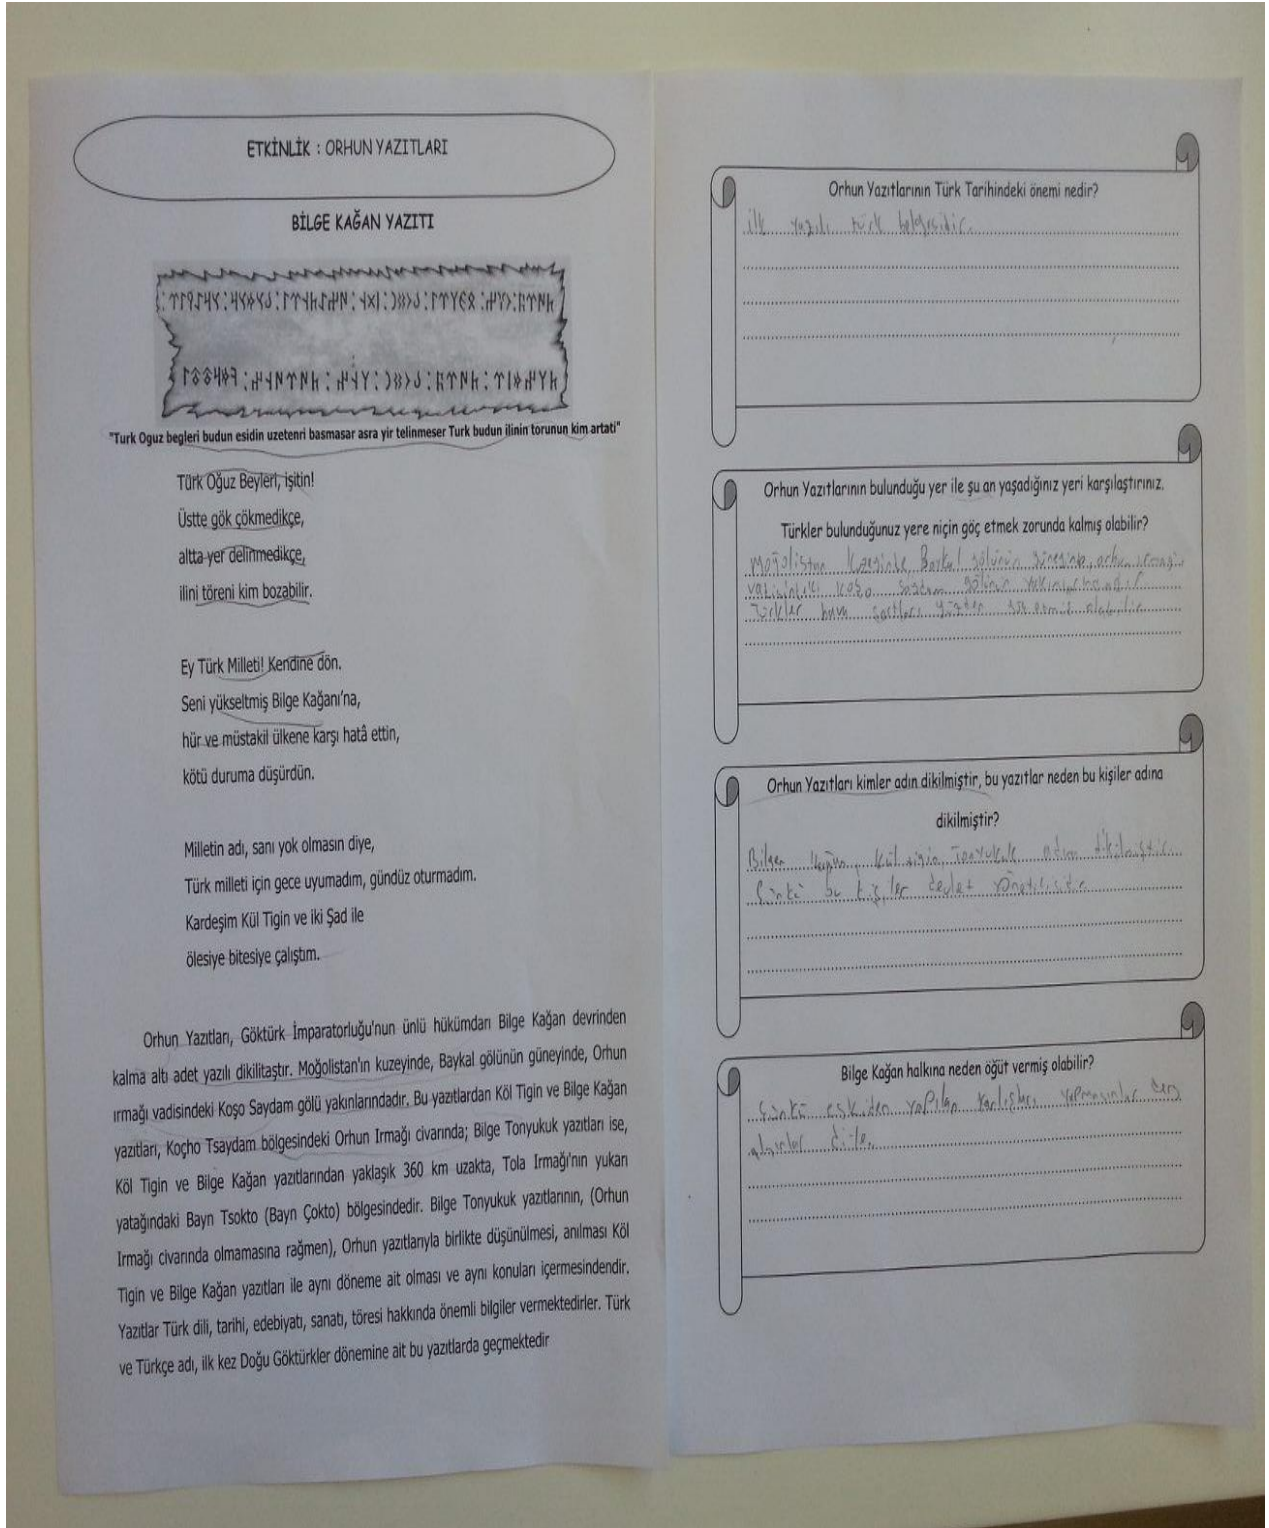 ETKİNLİK : ORHUN YAZITLARI
BİLGE KAĞAN YAZITI
"Turk Oguz begleri budun esidin uzetenri basmasar asra yir telinmeser Turk budun ilinin torunun kim artati"
Türk Oğuz Beyleri, işitin!
Üstte gök çökmedikçe,
altta yer delinmedikçe,
ilini töreni kim bozabilir.
Ey Türk Milleti! Kendine dön.
Seni yükseltmiş Bilge Kağanı'na,
hür ve müstakil ülkene karşı hatâ ettin,
kötü duruma düşürdün.
Milletin adı, sanı yok olmasın diye,
Türk milleti için gece uyumadım, gündüz oturmadım.
Kardeşim Kül Tigin ve iki Şad ile
ölesiye bitesiye çalıştım.
Orhun Yazıtları, Göktürk İmparatorluğu'nun ünlü hükümdarı Bilge Kağan devrinden
kalma altı adet yazılı dikilitaştır. Moğolistan'ın kuzeyinde, Baykal gölünün güneyinde, Orhun
ırmağı vadisindeki Koşo Saydam gölü yakınlarındadır. Bu yazıtlardan Köl Tigin ve Bilge Kağan
yazıtları, Koçho Tsaydam bölgesindeki Orhun Irmağı civarında; Bilge Tonyukuk yazıtları ise,
Köl Tigin ve Bilge Kağan yazıtlarından yaklaşık 360 km uzakta, Tola Irmağı'nın yukarı
yatağındaki Bayn Tsokto (Bayn Çokto) bölgesindedir. Bilge Tonyukuk yazıtlarının, (Orhun
Irmağı civarında olmamasına rağmen), Orhun yazıtlarıyla birlikte düşünülmesi, anılması Köl
Tigin ve Bilge Kağan yazıtları ile aynı döneme ait olması ve aynı konuları içermesindendir.
Yazıtlar Türk dili, tarihi, edebiyatı, sanatı, töresi hakkında önemli bilgiler vermektedirler. Türk
ve Türkçe adı, ilk kez Doğu Göktürkler dönemine ait bu yazıtlarda geçmektedir
Orhun Yazıtlarının Türk Tarihindeki önemi nedir?
ilk yazılı türk belgesidir.
Orhun Yazıtlarının bulunduğu yer ile şu an yaşadığınız yeri karşılaştırınız.
Türkler bulunduğunuz yere niçin göç etmek zorunda kalmış olabilir?
Moğolistan kuzeyinde Baykal gölünün güneyinde orhun ırmağı
vadisindeki koşo saydam gölünün yakınlarındadır
Türkler hava şartları yüzden göç etmiş olabilir
Orhun Yazıtları kimler adın dikilmiştir, bu yazıtlar neden bu kişiler adına
dikilmiştir?
Bilgen kağan, kül tigin, Tonyukuk adın dikilmiştir.
Çünkü bu kişiler devlet yöneticisidir
Bilge Kağan halkına neden öğüt vermiş olabilir?
Çünkü eskiden yapılan yanlışları yapmasınlar ders
alsınlar diye.